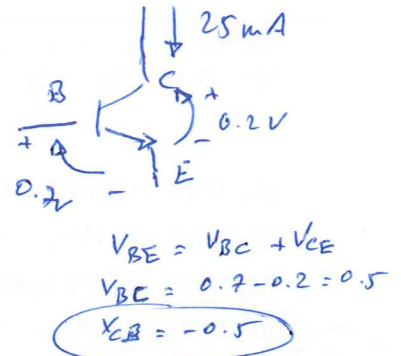 25mA
C
B
+
0.2V
+
-
E
0.7V
-
VBE = VBC + VCE
VBC = 0.7-0.2 = 0.5
VCB = -0.5